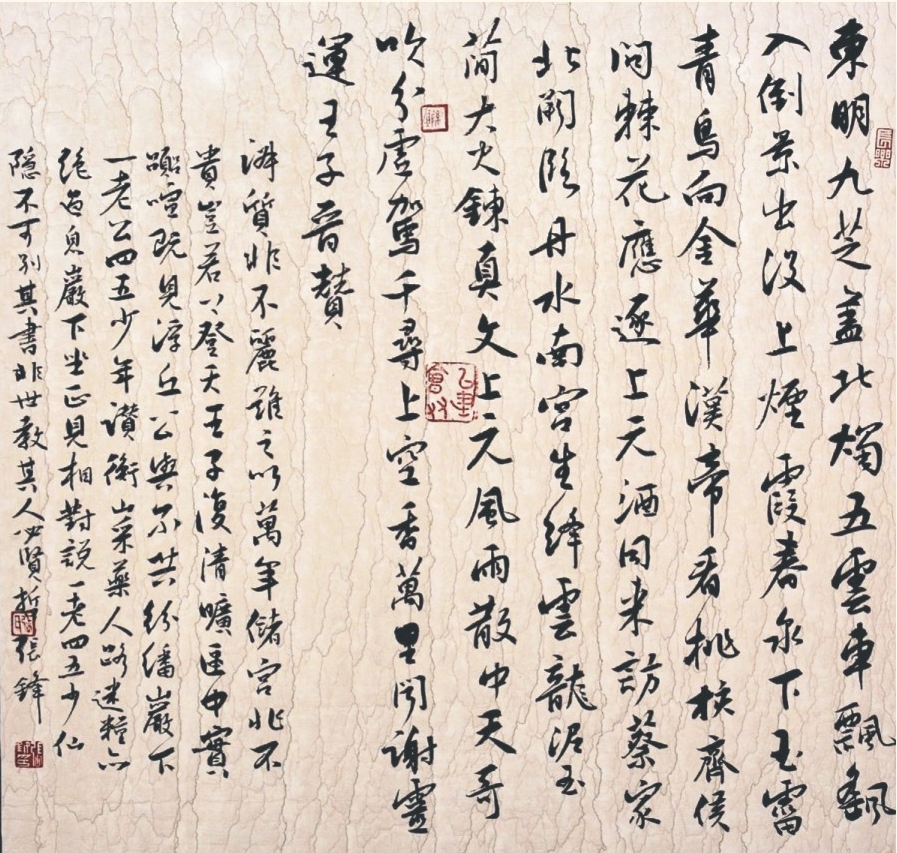 東明九芝蓋北燭五雲車飄颻
入倒景出沒上煙霞春泉下玉霤
青鳥向金華漢帝看桃核齊侯
問棘花應逐上元酒同来訪蔡家
北闕臨丹水南宮生絳雲龍泥玉
簡大火鍊真文上元風雨散中天哥
吹分虛駕千尋上空香萬里闻謝靈
運王子晉賛
淑質非不麗難之以萬年儲宮非不
貴豈若上登天王子復清曠區中實
譁喧既見浮丘公與尔共紛繙巖下
一老公四五少年讚衡山采藥人路迷粮亦
絶過息巖下坐正見相對説一老四五少仙
隐不可别其書非世教其人必賢哲張鋒